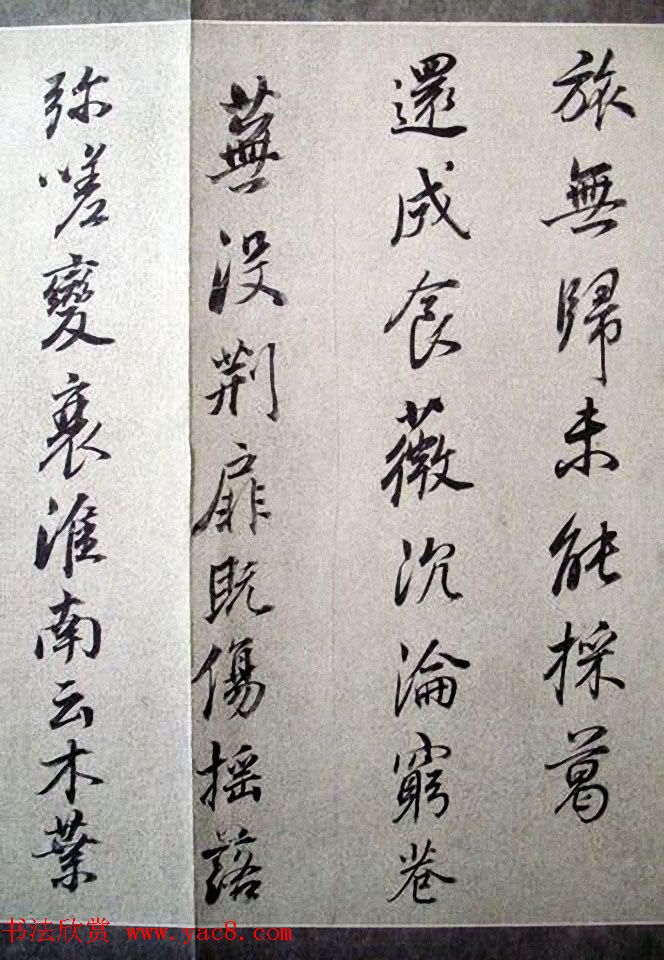 旅無歸未能採葛
還成食薇沉淪窮巷
蕪没荆扉既傷摇落
弥嗟變衰淮南云木葉
书法欣赏 www.yac8.com